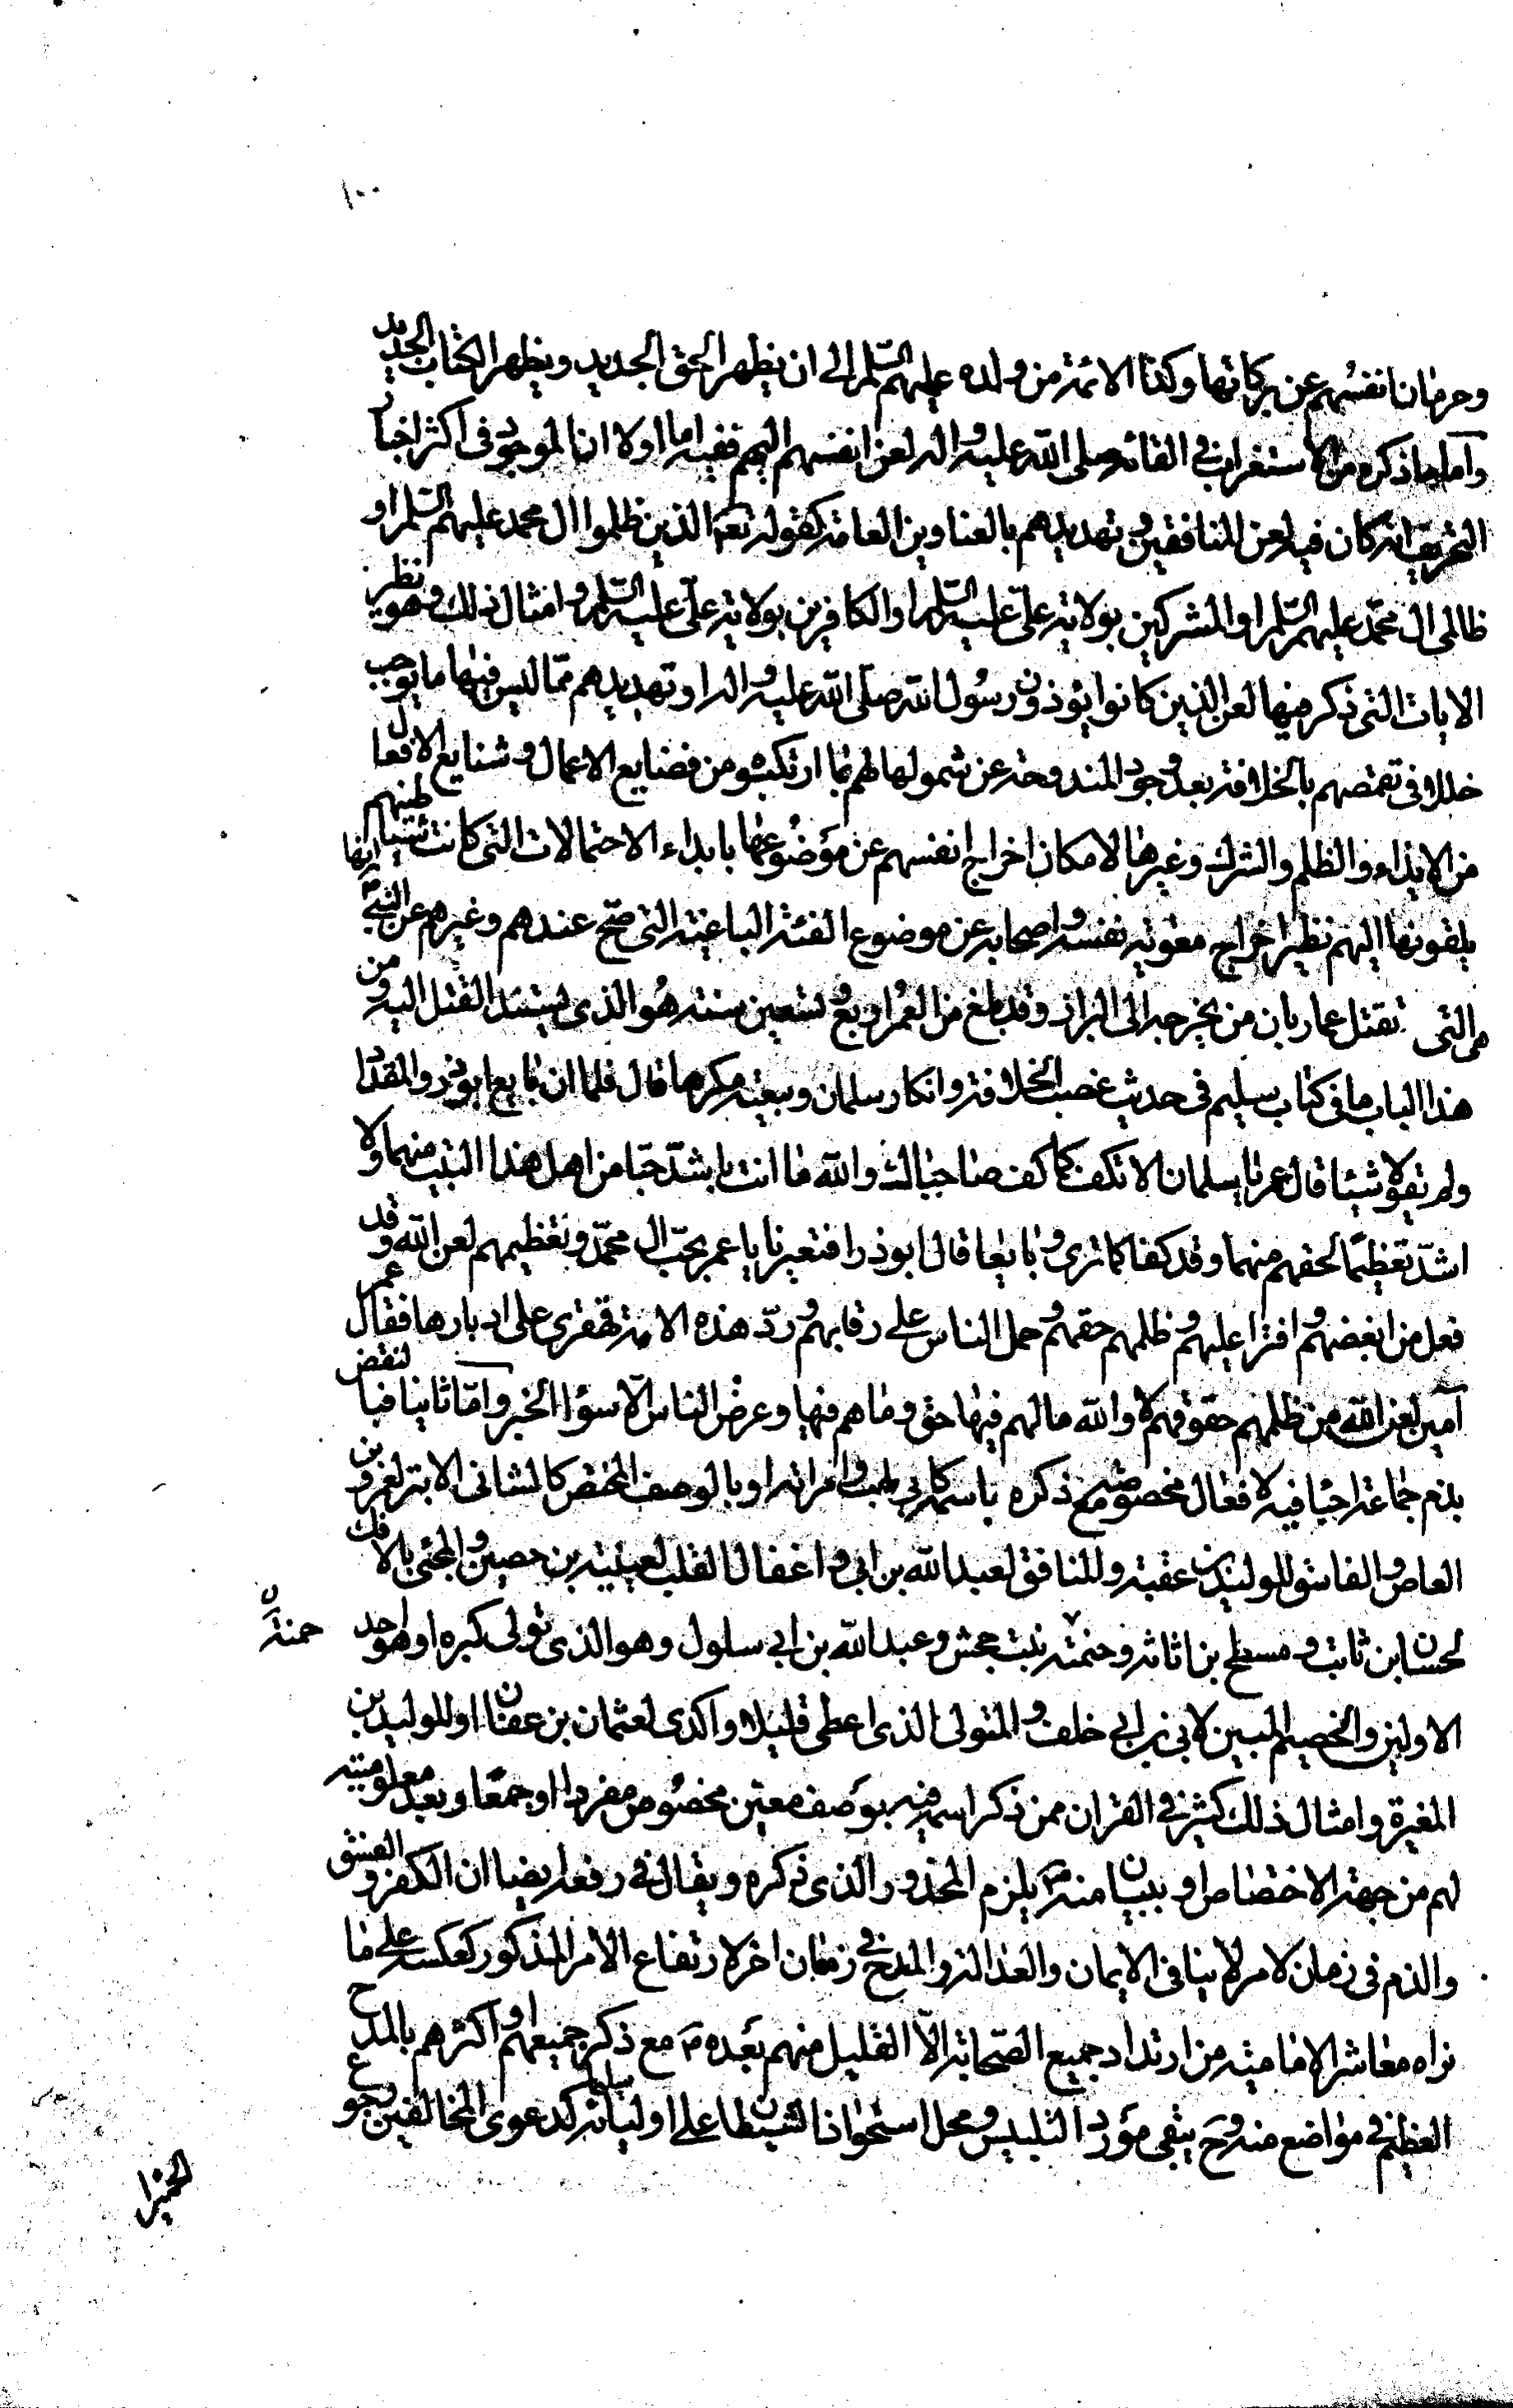 ١٠٠
وحرمان انفسهم عن بركاتها وكذا الائمة من ولده عليهم السلم الى ان يظهر الحق الجديد ويظهر الكتاب الجديد
واما ما ذكره من الاستغراب في القائه صلى الله عليه واله لعن انفسهم اليهم ففيه اما اولا ان الموجود في اكثر اخبار
التحريف انه كان فيه لعن المنافقين وتهديدهم بالعناوين العامة كقوله تعالى الذين ظلموا ال محمد عليهم السلم او
ظالمى ال محمد عليهم السلم او المشركين بولاية على عليه السلم او الكافرين بولاية على عليه السلم وامثال ذلك وهو نظير
الايات التى ذكر فيها لعن الذين كانوا يؤذون رسول الله صلى الله عليه واله او تهديدهم مما ليس فيها ما يوجب
خللا فى تقمصهم بالخلافة بعد وجود المندوحة عن شمولها لهم بما ارتكبوه من فضايع الاعمال وشنايع الافعال
من الايذاء والظلم والشرك وغيرها لامكان اخراج انفسهم عن موضوعها بابداء الاحتمالات التى كانت شياطينهم
يلقونها اليهم نظير اخراج معوية نفسه واصحابه عن موضوع الفئة الباغية التى صح عندهم وغيرهم عن النبى ص انها
هى التى تقتل عمار بان من يخرجه الى البراز وقد بلغ من العمر اربع وتسعين سنة هو الذى يستند القتل اليه ومن
هذا الباب ما فى كتاب سليم فى حديث غصب الخلافة وانكار سلمان وبيعته مكرها قال فلما ان بايع ابوذر والمقداد
ولم يقولا شيئا قال عمر يا سلمان الا تكف كما كف صاحباك والله ما انت باشد حبا من اهل هذا البيت منهما ولا
اشد تعظيما لحقهم منهما وقد كفا كما ترى وبايعا قال ابوذر افتعيرنا يا عمر بحب ال محمد وتعظيمهم لعن الله وقد
فعل من ابغضهم وافترا عليهم وظلمهم حقهم وحمل الناس على رقابهم ورد هذه الامة قهقرى على ادبارها فقال عمر
آمين لعن الله من ظلمهم حقوقهم لا والله ما لهم فيها حق وما هم فيها وعرض الناس الا سواء الخبر واما ثانيا فبالنقض
بذم جماعة احياء فيه لافعال مخصوصة مع ذكره باسمه كابى لهب وامراته او بالوصف المختص كالشانى الابتر لعمرو بن
العاص والفاسق للوليد بن عقبة والمنافق لعبد الله بن ابى واغفال القلب لعيينة بن حصين والمجئى بالافك
لحسان بن ثابت ومسطح بن اثاثه وحنمة بنت جحش وعبد الله بن ابى سلول وهو الذى تولى كبره او هو احد
حمنة ن
الاولين والخصيم المبين لابى بن ابى خلف والمتولى الذى اعطى قليلا واكدى لعثمان بن عفان او للوليد بن
المغيرة وامثال ذلك كثير في القران ممن ذكر اسمه فيه بوصف معين مخصوص مفردا او جمعا وبعد معلوميته
لهم من جهة الاختصاص او ببيان منه ص يلزم المحذور الذى ذكره ويقال في رفعه ايضا ان الكفر والفسق
والذم فى زمان لامر لا ينافى الايمان والعدالة والمدح في زمان اخر لارتفاع الامر المذكور كعكسه على ما
نراه معاشر الامامية من ارتداد جميع الصحابة الا القليل منهم بعده ص مع ذكر جميعهم او اكثرهم بالمدح
العظيم في مواضع منه وح يبقى مورد التلبيس ومحل استحواذ الشيطان على اوليائه كدعوى المخالفين رجوع